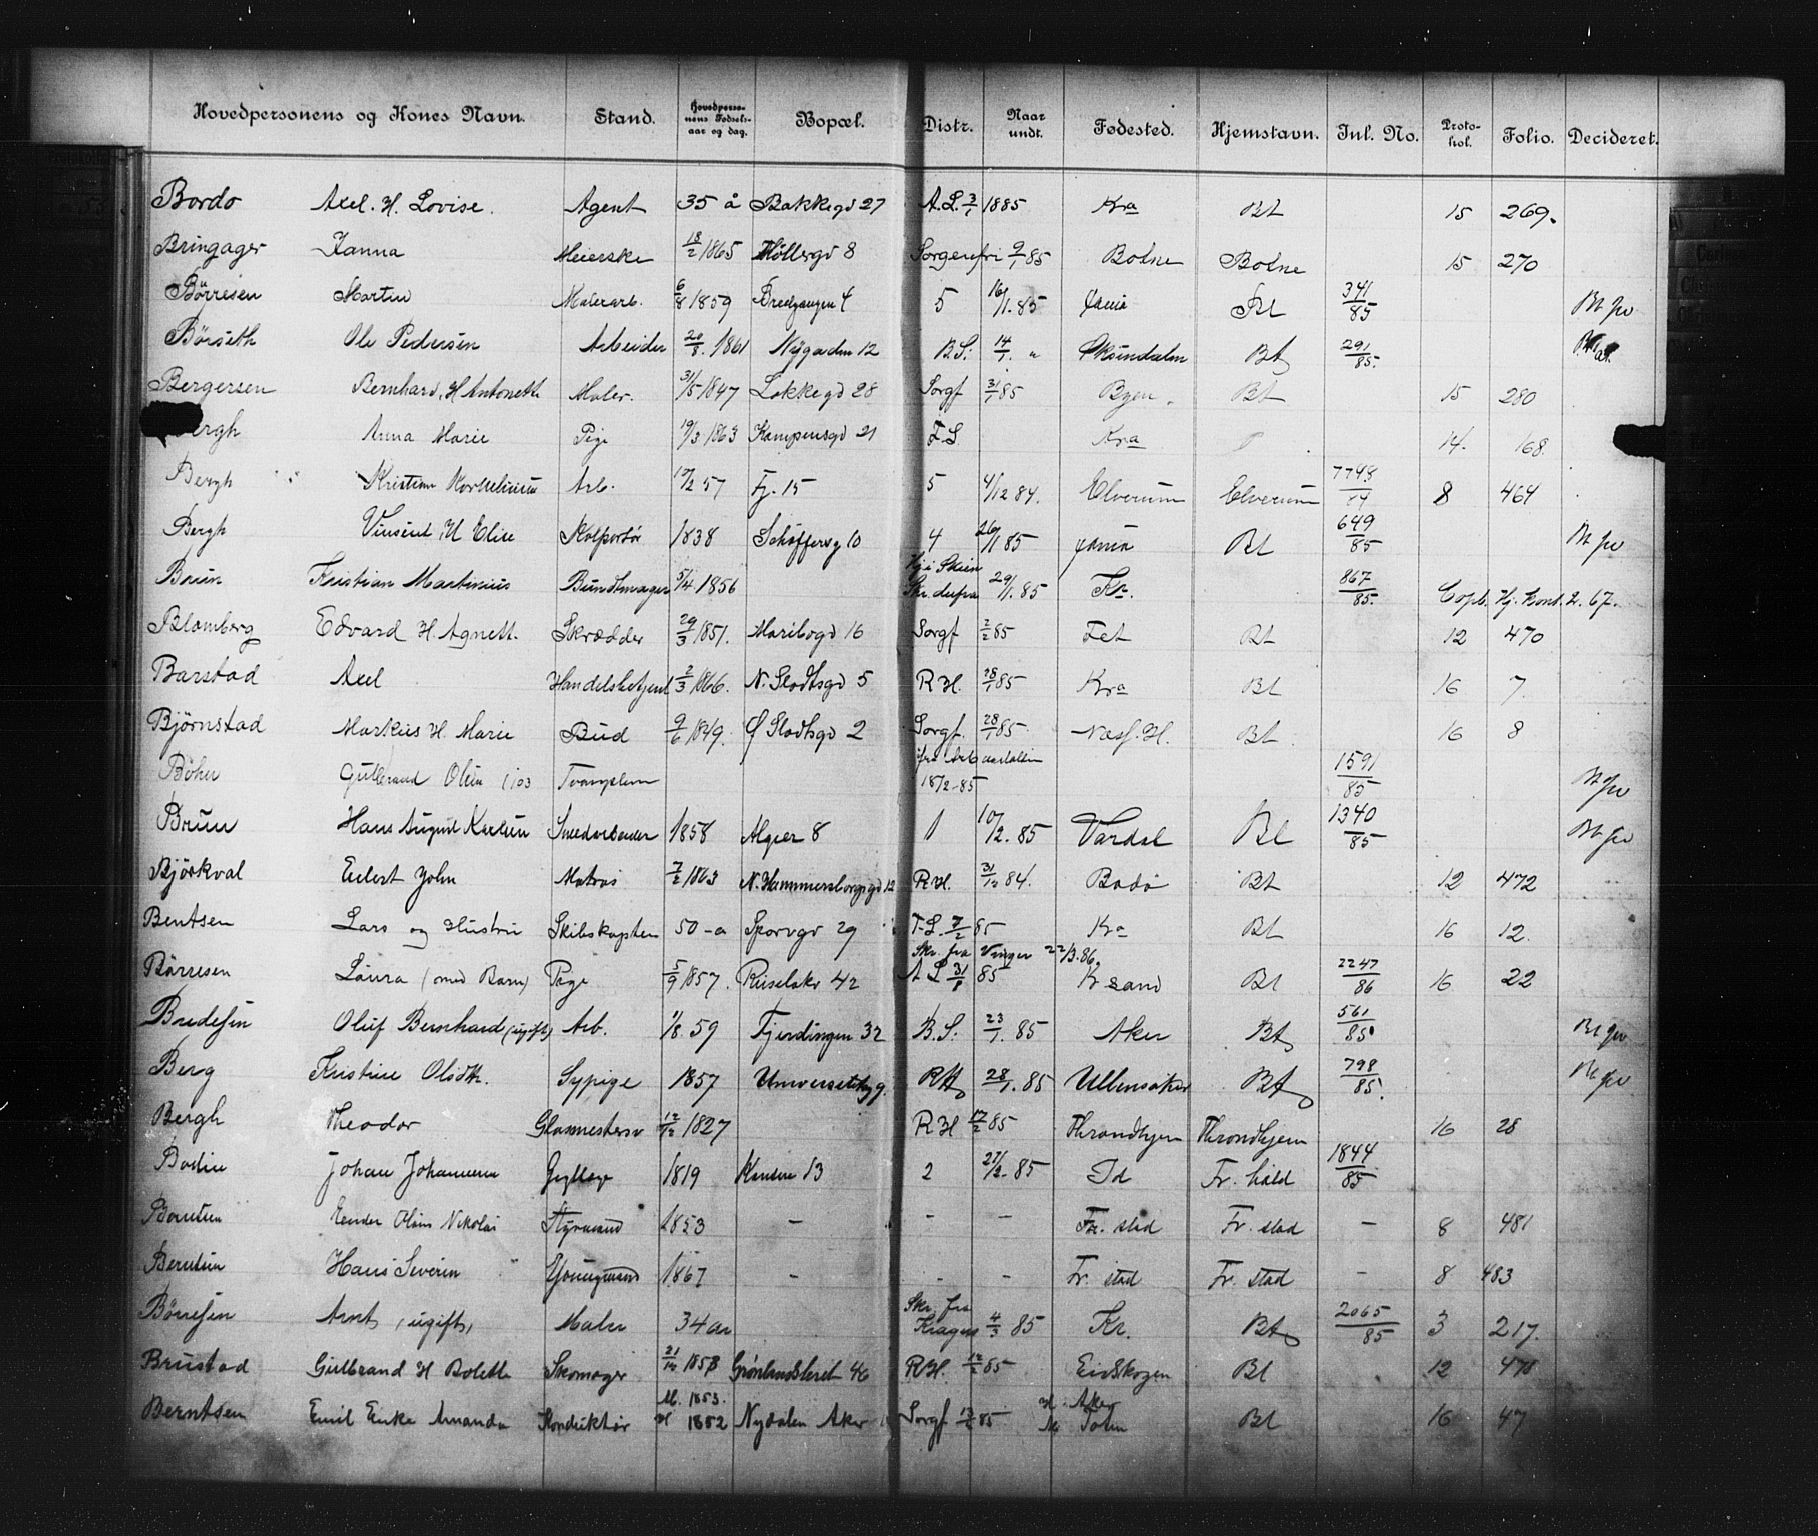 Hovedpersonens og Kones Navn. Stand. Hovedpersonens Fødselsaar og dag. Bopæl. Distr. Naar undt. Fødested. Hjemstavn. Inl. No. Protokol. Folio. Decideret.
Bordo Axel. H. Lovise. Agent 35 å Bakkegd 27 A.L. 3/1 1885 Kra Bt 15 269.
Bringager Hanna Meierske 18/2 1865 Møllergd 8 Sorgenfri 9/1 85 Botne Botne 15 270
Børresen Martin Malerarb. 6/8 1859 Bredgangen 4 5 16/1.85 Xania Bt 341/85 Bt pv
Børseth Ole Pedersen Arbeider 20/8. 1861 Nygaden 12 B.S. 14/1. " Øksendalen Bt 291/85.
Bergersen Bernhard, H Antonette Maler. 31/5 1847 Løkkegd 28 Sorgf 31/1 85 Byen. Bt 15 280
Bergh Anna Marie Pige 19/3 1863 Kampensgd 21 F.S Kra 14. 168
Bergh Kristian Kornelius Arb. 10/2 57 Fj. 15 5 4/12 84. Elverum Elverum 7748/84 8 464
Bergh Vinsent, H Elise Kolportør 1838 Schøffersg 10 4 26/1 85 Xania Bt 649/85 Bt pv
Brun Kristian Martinius Bundtmager 5/4 1856 Hj i Skien Skr. derfra 29/1.85 Kr. 867/85. Copb. Hj. Kont. 2. 67.
Blomberg Edvard H. Agnett. Skrædder 29/3 1851. Maribogd 16 Sorgf 2/2 85 Fet Bt 12 470
Barstad Axel Handelsbetjent 2/3 1866. N. Slodtsgd 5 R.H. 28/1 85 Kra Bt 16 7.
Bjørnstad Markus H. Marie Bud 9/6 1849. Ø Slodtsgd 2 Sorgf. 28/1 85 Næsf. H. Bt 16 8
Bøhn Gulbrand Olsen 1103 Tvangslem fra Arbanstalten 18/2-85 1591/85 Bt pv
Brun Hans August Karlsen Smedarbeider 1858 Algier 8 1 10/2.85 Vardal Bt 1340/85 Bt pv
Bjørkval Eilert John Matros 7/2 1863 N. Hammersborgsgd 12 R.H. 31/12 84. Bodø Bt 12 472
Bentsen Lars og Hustru Skibskapten 50-a Sporvgd 29 F.L. 7/2 85 Kra Bt 16 12.
Skr. fra Vinger 22/3.86.
Børresen Laura (med Barn) Pige 5/9 1857. Ruseløkv 42 A L 31/1 85 Kr sand Bt 2247/86 16 22
Bredesen Oluf Bernhard (ugift) Arb. 1/8. 59 Fjerdingen 32 B.S. 23/1. 85 Aker Bt 561/85 Bt pv
Berg Kristine Olsdtr. Sypige 1857 Universitetsg 9. RH 28/1. 85 Ullensaker Bt 798/85. Bt pv
Bergh Theodor Glasmestersv 12/12 1827 R H 17/2 85 Throndhjem Throndhjem 16 28
Bodin Johan Johannesen 1819 13 2 27/2. 85 Id Fr. hald 1844/85
Einder Olaus Nikolai Styrmand 1853 – – – Fr. stad Fr. stad – 8 481
Berntsen Hans Severin Youngmand 1867 – – – Fr. stad Fr. stad – 8 483
Børresen Arnt, ugift, Maler 34 aar Skr. fra Kragerø 4/3 85 Kr. Bt 2065/85 3 217.
Brustad Gulbrand H Bolette Skomager 21/12 1858 Grønlandsleret 46 R.H. 12/2 85 Eidskogen Bt 12 478
Berntsen Emil Enke Amanda Konduktør M. 1853. H 1852 Nydalen Aker Sorgf 13/2 85 H. Aker M Toten Bt 16 47